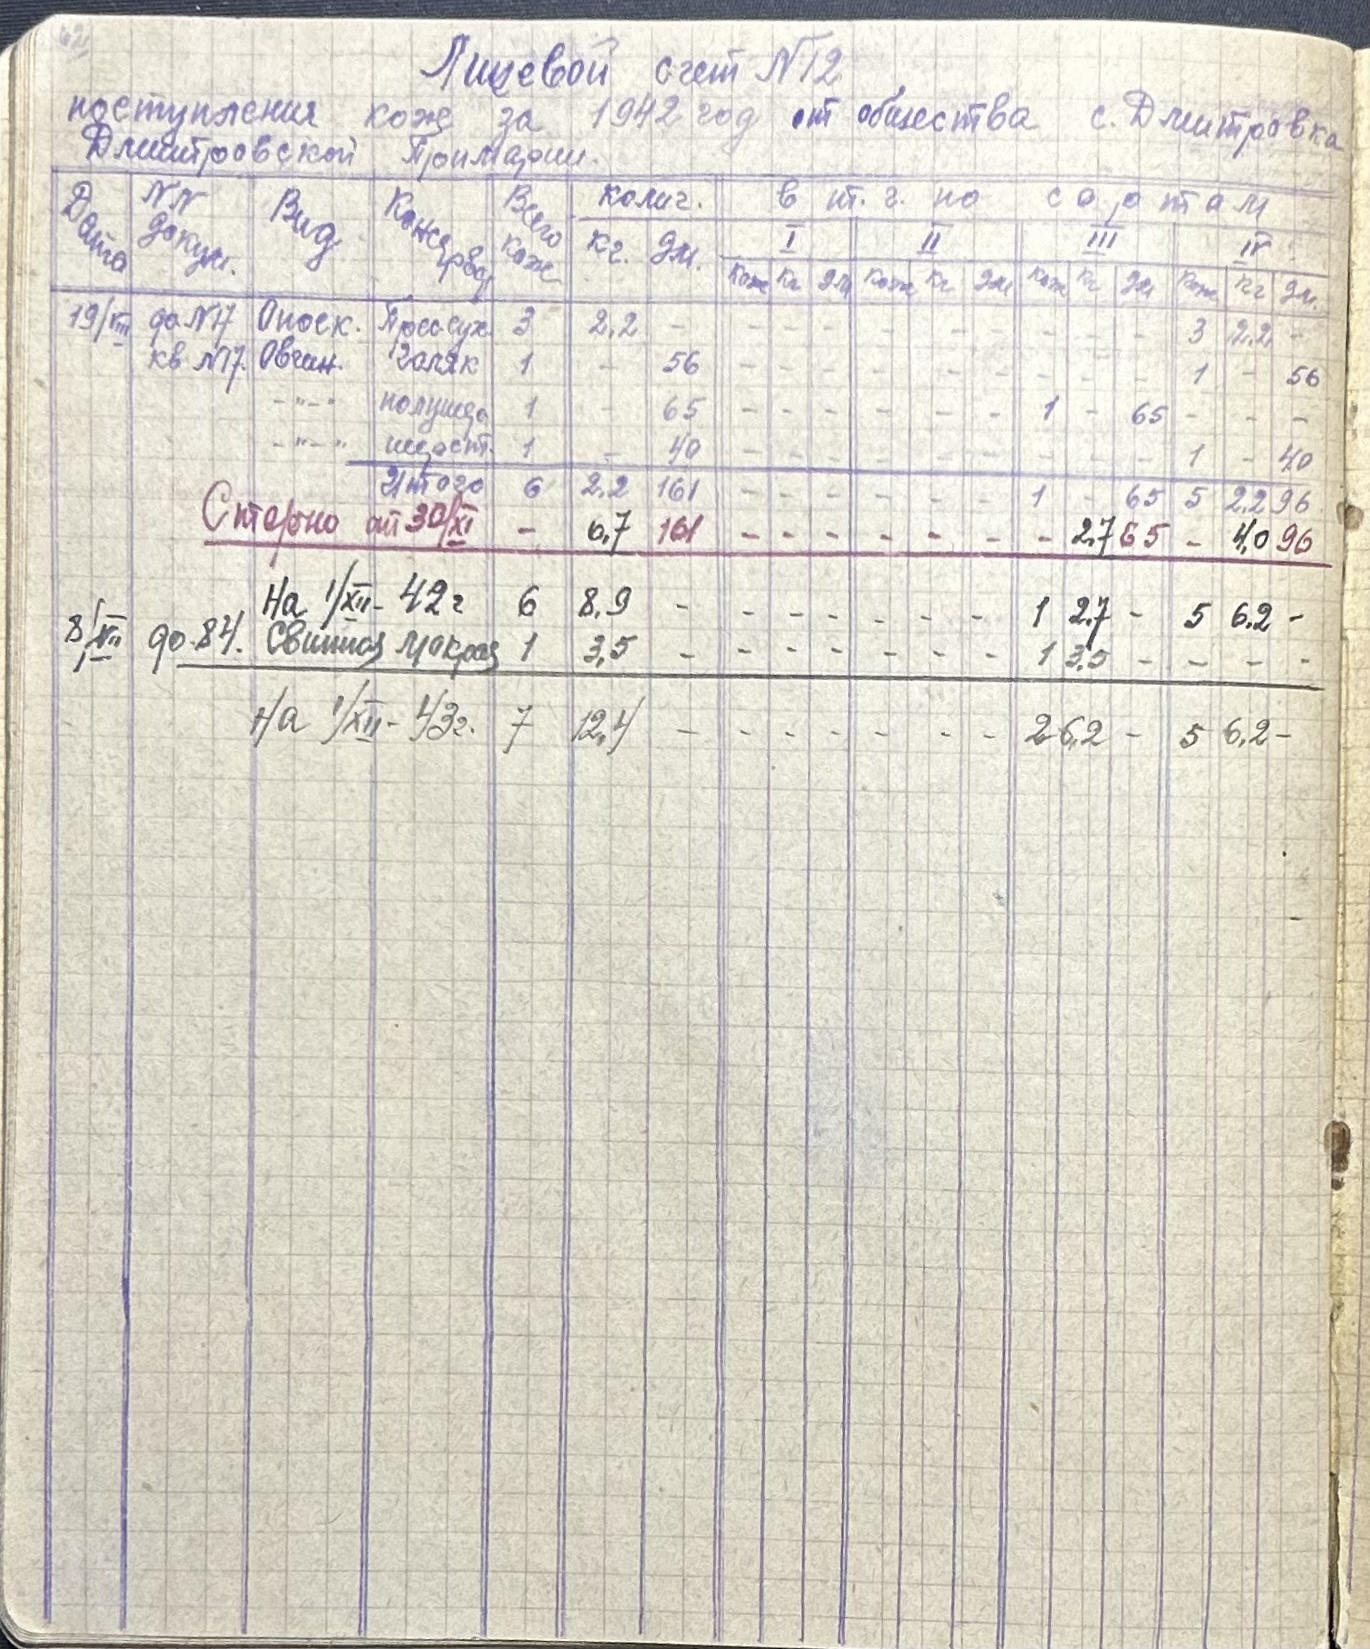 Лицевой счет N12
поступления кож за 1942 год от общества с. Дмитровка
Дмитровской Примарии.
Дата NN докум. Вид Консервов Всего кож колич. в т. ч. по сортам
кг. дм. I II III IV
кож кг дм кож кг дм кож кг дм кож кг дм.
19/VIII до N17 Опоек. Пресосух. 3 2,2 - - - - - - - - - - 3 2,2 -
кв N17. Овчин. Голяк 1 - 56 - - - - - - - - - 1 - 56
-"-" полушер 1 - 65 - - - - - - 1 - 65 - - -
-"-" шерст. 1 - 40 - - - - - - - - - 1 - 40
Итого 6 2,2 161 - - - - - - 1 - 65 5 2,2 96
Сторно от 30/XI - 6,7 161 - - - - - - - 2,7 65 - 4,0 96
На 1/XII - 42 г 6 8,9 - - - - - - - 1 2,7 - 5 6,2 -
8/XII до 84. Свиная мокрая 1 3,5 - - - - - - - 1 3,5 - - - -
На 1/XII - 43 г. 7 12,4 - - - - - - - 2 6,2 - 5 6,2 -